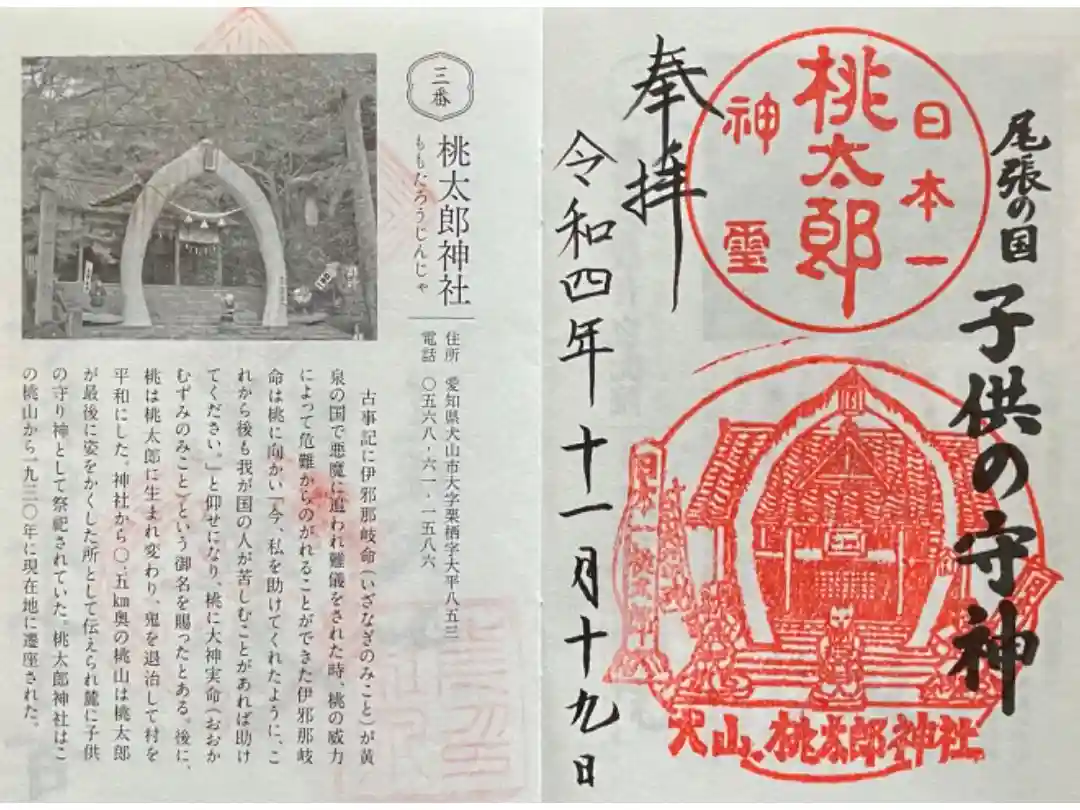 尾張の国
子供の守神
日本一
桃太郎
神霊
奉拝
令和四年十一月十九日
日本一桃太郎
犬山、桃太郎神社
三番
桃太郎神社
ももたろうじんじゃ
住所 愛知県犬山市大字栗栖字大平八五三
電話 〇五六八・六一・一五八六
古事記に伊邪那岐命(いざなぎのみこと)が黄
泉の国で悪魔に追われ難儀をされた時、桃の威力
によって危難からのがれることができた伊邪那岐
命は桃に向かい「今、私を助けてくれたように、こ
れから後も我が国の人が苦しむことがあれば助け
てください。」と仰せになり、桃に大神実命(おおか
むずみのみこと)という御名を賜ったとある。後に、
桃は桃太郎に生まれ変わり、鬼を退治して村を
平和にした。神社から〇・五㎞奥の桃山は桃太郎
が最後に姿をかくした所として伝えられ麓に子供
の守り神として祭祀されていた。桃太郎神社はこ
の桃山から一九三〇年に現在地に遷座された。